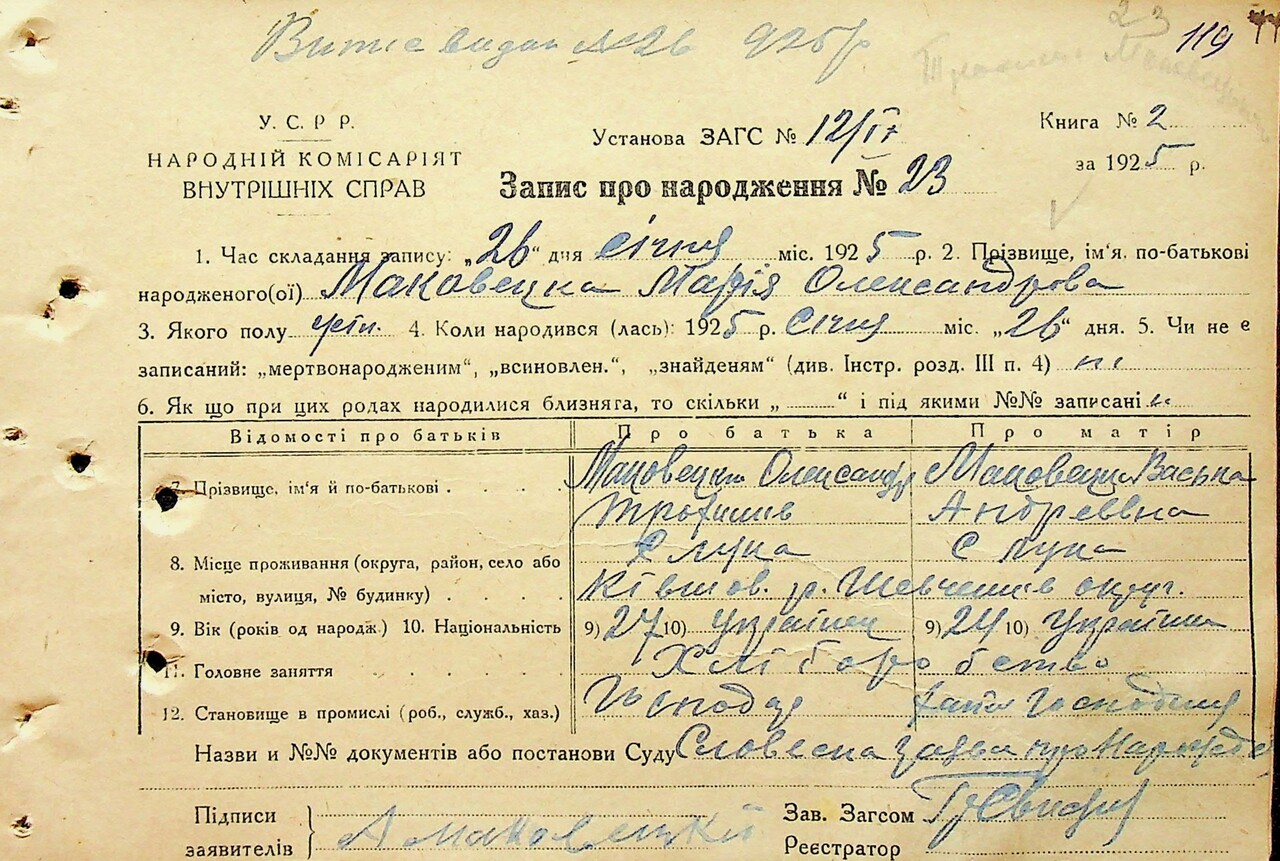 23
119
Витяг видан №26 925 р
У. С. Р Р.
НАРОДНІЙ КОМІСАРІЯТ
ВНУТРІШНІХ СПРАВ
Установа ЗАГС № 12/IV
Книга № 2
за 1925 р.
Запис про народження № 23
1. Час складання запису: „26“ дня січня міс. 1925 р. 2. Прізвище, ім'я, по-батькові
народженого(ої) Маковецка Марія Олександрова
3. Якого полу жін. 4. Коли народився (лась): 1925 р. Січня міс. „26“ дня. 5. Чи не є
записаний: „мертвонародженим“, „всиновлен.“, „знайденям“ (див. Інстр. розд. III п. 4) ні
6. Як що при цих родах народилися близняга, то скільки „ “ і під якими №№ записані
Відомості про батьків Про батька Про матір
7. Прізвище, ім'я й по-батькові Маковецкий Олександр Маковецка Васька
Трохимів Андреевна
8. Місце проживання (округа, район, село або С Лука С Лука
місто, вулиця, № будинку) р. Шевченків округ.
9. Вік (років од народж.) 10. Національність 9) 27 10) Українец 9) 24 10) Українка
11. Головне заняття Хліборобство
12. Становище в промислі (роб., служб., хаз.) Господар Господиня
Назви и №№ документів або постанови Суду Словесна заява про Народж
Підписи
заявителів А Маковецкий
Зав. Загсом
Реєстратор